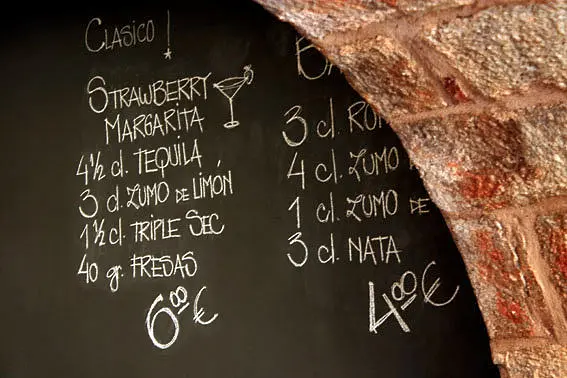 Clasico!
Strawberry
Margarita
4½ cl. Tequila
3 cl. Zumo de Limón
1½ cl. Triple Sec
40 g. Fresas
6.00 €
3 cl.
4 cl. Zumo
1 cl. Zumo de
3 cl. Nata
4.00 €